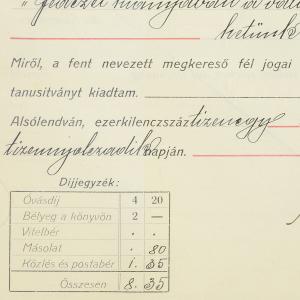 hetünk
Miről, a fent nevezett megkereső fél jogai
tanusitványt kiadtam.
Alsólendván, ezerkilenczszáztizenegy
tizennyolczadik napján.
Díjjegyzék:
Óvásdíj 4 20
Bélyeg a könyvön 2 —
Vitelbér . .
Másolat . 80
Közlés és postabér 1. 35
Összesen 8. 35